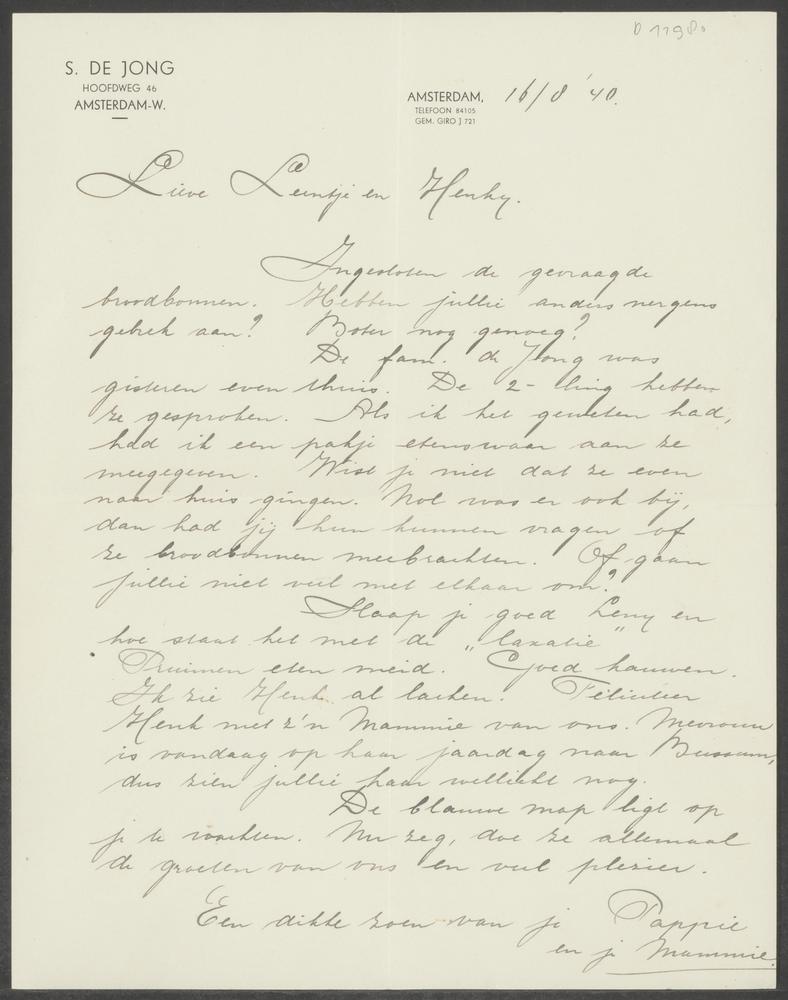 D 11980
S. DE JONG
HOOFDWEG 46
AMSTERDAM-W.
AMSTERDAM, 16/8 '40.
TELEFOON 84105
GEM. GIRO J 721
Lieve Leentje en Henky.
Ingesloten de gevraagde
broodbonnen. Hebben jullie anders nergens
gebrek aan? Boter nog genoeg?
De fam. de Jong was
gisteren even thuis. De 2-ling hebben
ze gesproken. Als ik het geweten had,
had ik een pakje etenswaar aan ze
meegegeven. Wist je niet dat ze even
naar huis gingen. Nol was er ook bij,
dan had jij hun kunnen vragen of
ze broodbonnen meebrachten. Of gaan
jullie niet veel met elkaar om?
Slaap je goed Leny en
hoe staat het met de „laxatie"
Pruimen eten meid. Goed kauwen.
Ik zie Henk al lachen. Feliciteer
Henk met z'n Mammie van ons. Mevrouw
is vandaag op haar jaardag naar Bussum,
dus zien jullie haar wellicht nog.
De blauwe map ligt op
je te wachten. Nu zeg, doe ze allemaal
de groeten van ons en veel plezier.
Een dikke zoen van je Pappie
en je Mammie.